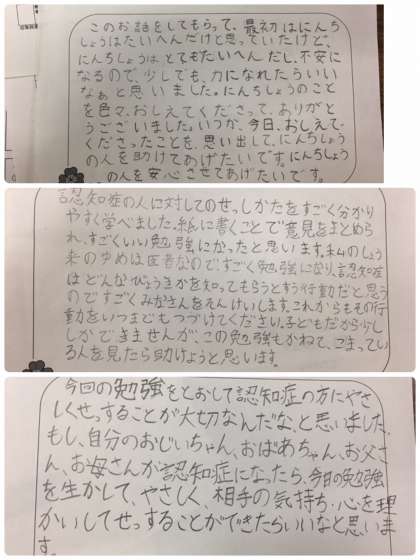 このお話をしてもらって、最初はにんち
しょうはたいへんだけと思っていたけど、
にんちしょうはとてもたいへんだし、不安に
なるので、少しでも、力になれたらいい
なぁと思いました。にんちしょうのこと
を色々、おしえてくださって、ありがと
うございました。いつか、今日、おしえて
くださったことを、思い出して、にんちしょう
の人を助けてあげたいです。にんちしょう
の人を安心させてあげたいです。
認知症の人に対してのせっしかたをすごく分かり
やすく学べました。紙に書くことで意見をまとめら
れ、すごくいい勉強になったと思います。私のしょう
来のゆめは医者なので、すごく勉強になり、認知症
はどんなびょうきかを知ってもらうとすう行動だと思う
のですごくみかさんをそんけいします。これからもその行
動をいつまでもつづけてください。子どもだから少し
しかできませんが、この勉強もかねて、こまってい
る人を見たら助けようと思います。
今回の勉強をとおして認知症の方にやさ
しくせっすることが大切なんだな、と思いました。
もし、自分のおじいちゃん、おばあちゃん、お父さ
ん、お母さんが認知症になったら、今日の勉強
を生かして、やさしく、相手の気持ち・心を理
かいしてせっすることができたらいいなと思いま
す。